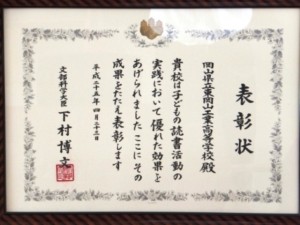 表彰状
岡山県立東岡山工業高等学校殿
貴校は子どもの読書活動の
実践において優れた効果を
あげられましたここにその
成果をたたえ表彰します
平成二十五年四月二十三日
文部科学大臣
下村博文